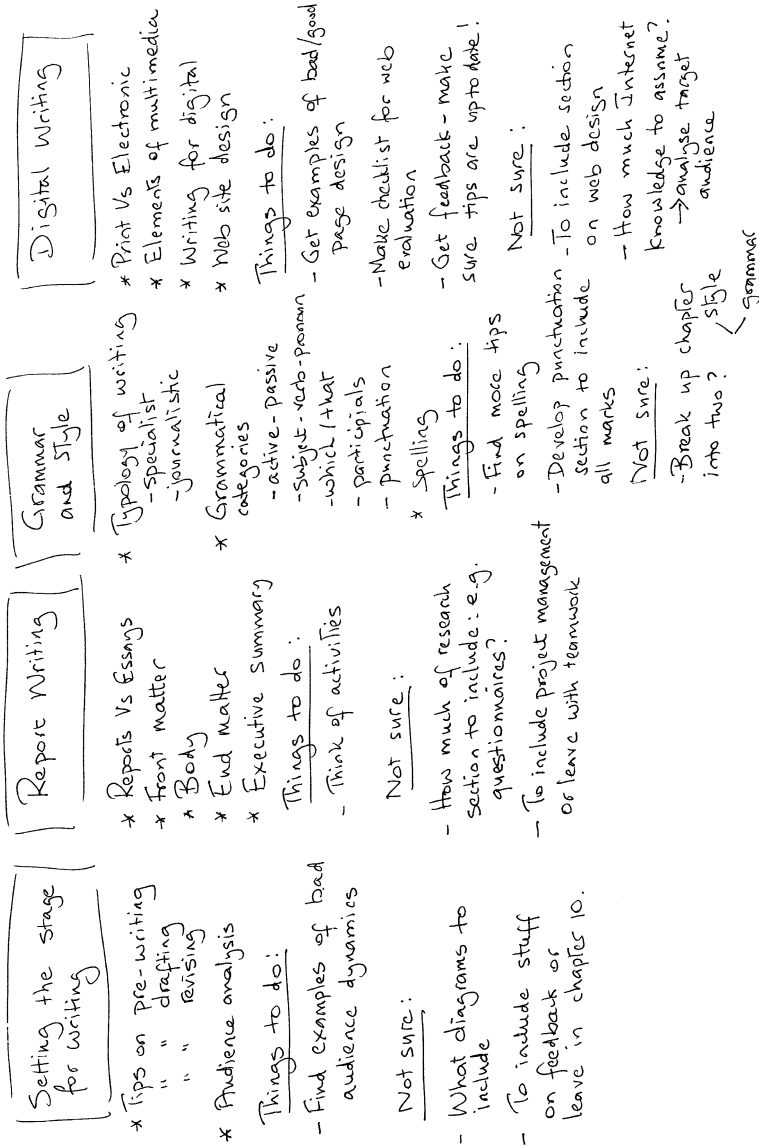 Setting the stage
for writing
* Tips on pre-writing
" " drafting
" " revising
* Audience analysis
Things to do:
- Find examples of bad
audience dynamics
Not sure:
- What diagrams to
include
- To include stuff
on feedback or
leave in chapter 10.
Report Writing
* Reports Vs Essays
* Front matter
* Body
* End matter
* Executive summary
Things to do:
- Think of activities
Not sure:
- How much of research
section to include: e.g.
questionnaires?
- To include project management
or leave with teamwork
Grammar
and Style
* Typology of writing
- specialist
- journalistic
* Grammatical
categories
- active-passive
- subject-verb-pronoun
- which/that
- participials
- punctuation
* Spelling
Things to do:
- Find more tips
on spelling
- Develop punctuation
section to include
all marks
Not sure:
- Break up chapter
into two? < style
grammar
Digital Writing
* Print Vs Electronic
* Elements of multimedia
* Writing for digital
* Web site design
Things to do:
- Get examples of bad/good
page design
- Make checklist for web
evaluation
- Get feedback - make
sure tips are up to date!
Not sure:
- To include section
on web design
- How much Internet
knowledge to assume?
→ analyse target
audience